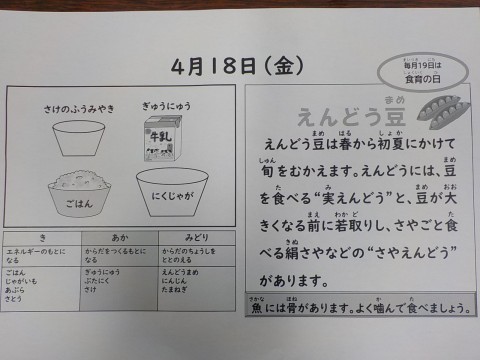 4月18日(金)
毎月19日は
食育の日
さけのふうみやき
ぎゅうにゅう
牛乳
ごはん
にくじゃが
き
あか
みどり
エネルギーのもとに
なる
からだをつくるもとに
なる
からだのちょうしを
ととのえる
ごはん
じゃがいも
あぶら
さとう
ぎゅうにゅう
ぶたにく
さけ
えんどうまめ
にんじん
たまねぎ
えんどう豆
えんどう豆は春から初夏にかけて
旬をむかえます。えんどうには、豆
を食べる“実えんどう”と、豆が大
きくなる前に若取りし、さやごと食
べる絹さやなどの“さやえんどう”
があります。
魚には骨があります。よく噛んで食べましょう。